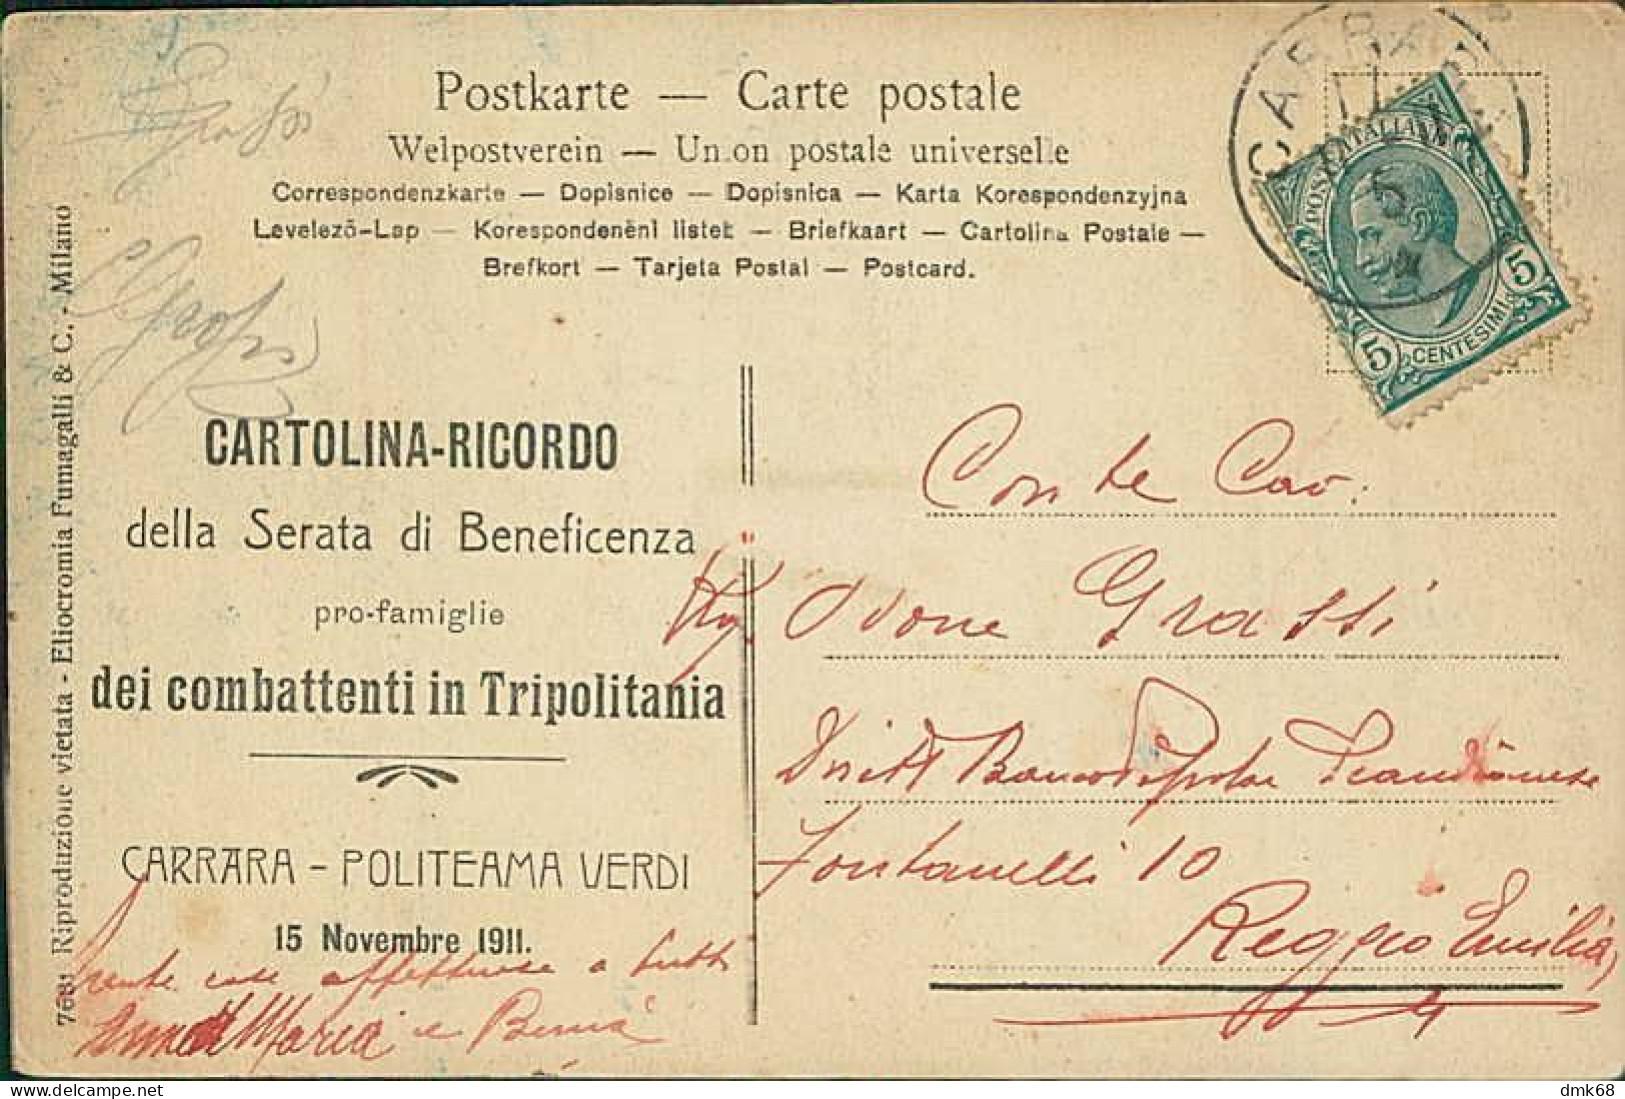 Postkarte — Carte postale
Welpostverein — Union postale universelle
Correspondenzkarte — Dopisnice — Dopisnica — Karta Korespondenzyjna
Levelező-Lap — Korespondenčni listek — Briefkaart — Cartolina Postale —
Brefkort — Tarjeta Postal — Postcard.
CARRARA
POSTE ITALIANE
5 CENTESIMI 5
7681 Riproduzione vietata - Eliocromia Fumagalli & C. - Milano
CARTOLINA-RICORDO
della Serata di Beneficenza
pro-famiglie
dei combattenti in Tripolitania
CARRARA - POLITEAMA VERDI
15 Novembre 1911.
tante cose affettuose a tutti
Maria e
Conte Cav.
Odone Grassi
Banco Popolare
Fontanelli 10
Reggio Emilia
dmk68